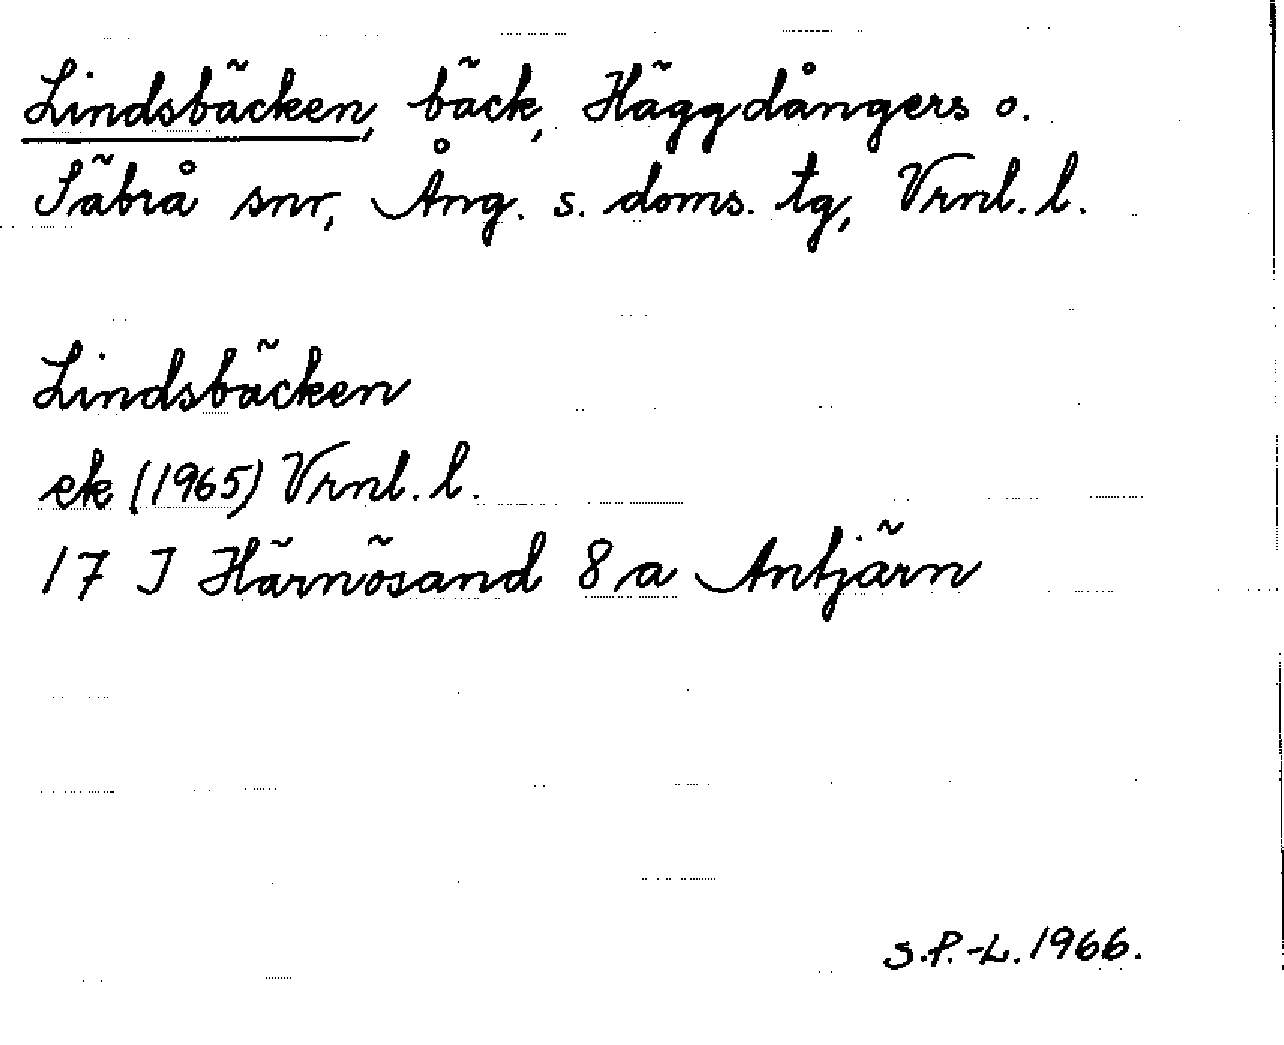 Lindsbäcken, bäck, Häggdångers o.
Säbrå snr, Ång. s. doms. tg, Vrnl. l.
Lindsbäcken
ek (1965) Vrnl. l.
17 J Härnösand 8 a Antjärn
S.P.-L. 1966.